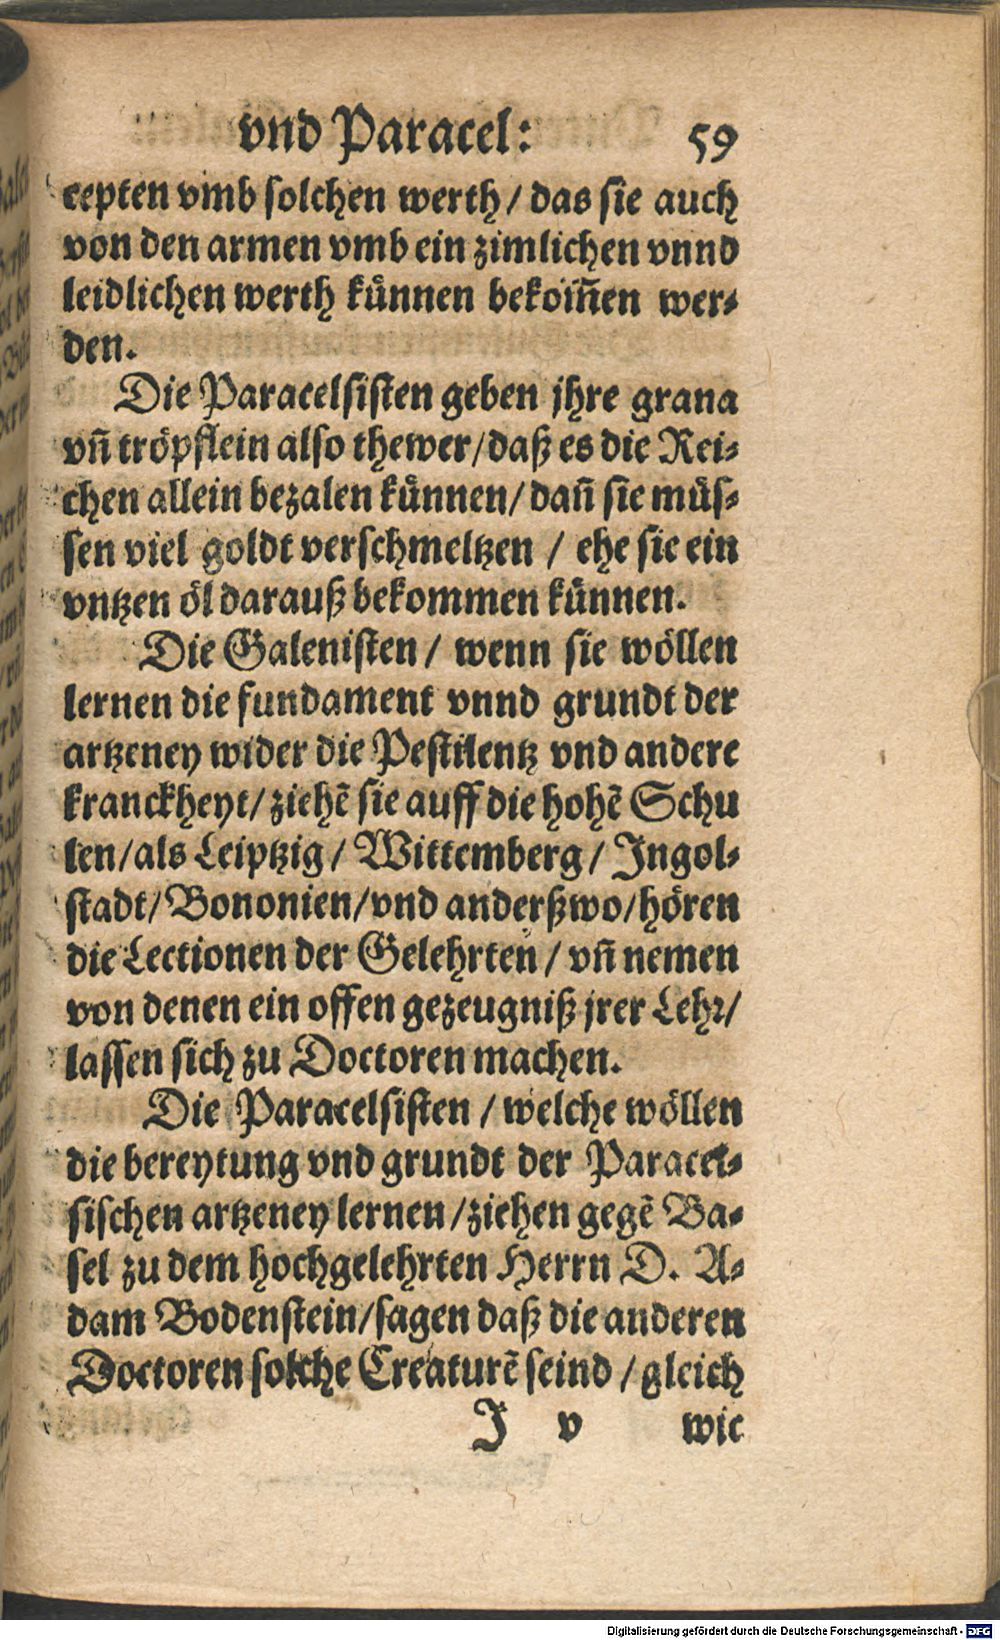 vnd Paracel: 59
cepten vmb solchen werth / das sie auch
von den armen vmb ein zimlichen vnnd
leidlichen werth kuͤnnen bekom̃en wer⸗
den.
Die Paracelsisten geben jhre grana
vñ troͤpflein also thewer / daß es die Rei⸗
chen allein bezalen kuͤnnen / dañ sie muͤs⸗
sen viel goldt verschmeltzen / ehe sie ein
vntzen oͤl darauß bekommen kuͤnnen.
Die Galenisten / wenn sie woͤllen
lernen die fundament vnnd grundt der
artzeney wider die Pestilentz vnd andere
kranckheyt / ziehẽ sie auff die hohẽ Schu
len / als Leiptzig / Wittemberg / Ingol⸗
stadt / Bononien / vnd anderßwo / hoͤren
die Lectionen der Gelehrten / vñ nemen
von denen ein offen gezeugniß jrer Lehꝛ /
lassen sich zu Doctoren machen.
Die Paracelsisten / welche woͤllen
die bereytung vnd grundt der Paracel⸗
sischen artzeney lernen / ziehen gegẽ Ba⸗
sel zu dem hochgelehrten Herrn D. A⸗
dam Bodenstein / sagen daß die anderen
Doctoren solche Creaturẽ seind / gleich
J v wie
Digitalisierung gefördert durch die Deutsche Forschungsgemeinschaft - DFG